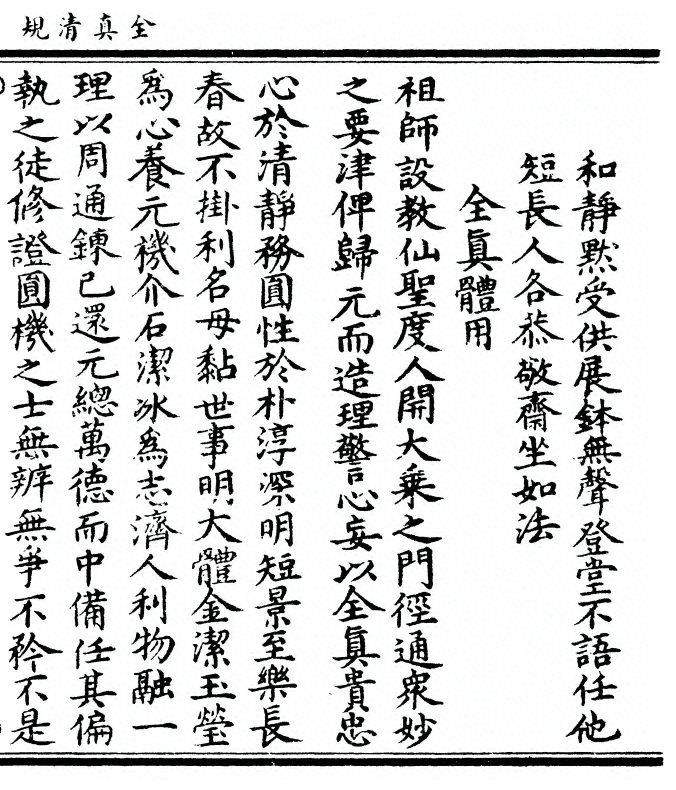 全真清規
和靜黙受供展鉢無聲登堂不語任他
短長人各恭敬齋坐如法
全真體用
祖師設教仙聖度人開大乗之門徑通衆妙
之要津俾歸元而造理警心妄以全真貴忠
心於清靜務圓性於朴淳深明短景至樂長
春故不掛利名毋黏世事明大體金潔玉瑩
為心養元機介石潔冰為志濟人利物融一
理以周通鍊已還元總萬德而中備任其偏
執之徒修證圓機之士無辨無爭不矜不是